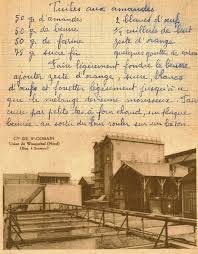 Tuiles aux amandes
50 g. d'amandes 2 blancs d'œuf
50 g. de beurre 2 cuillers de lait
50 g. de farine zeste d'orange
75 g. sucre fin quelques gouttes de
Faire légèrement fondre le beurre
ajouter zeste d'orange, sucre, blancs
d'œufs et fouetter légèrement jusqu'à ce
que le mélange devienne mousseux. Faire
cuire par petits tas à four chaud, en plaque
beurrée au sortir du four rouler sur un bâton.
Cie DE St-GOBAIN
Usine de Wasquehal (Nord)